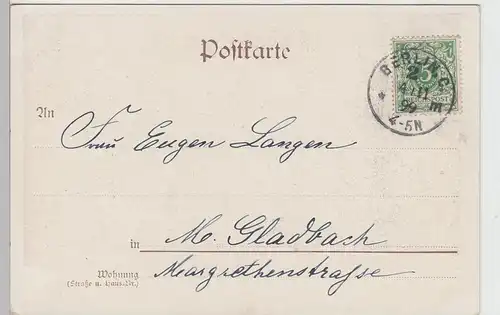 Postkarte
BERLIN.C
2
4 11
99
m
4-5N
5
POST
An
Frau Eugen Langen
in
M. Gladbach
Wohnung
(Straße u. Haus-Nr.)
Margrethenstraſse